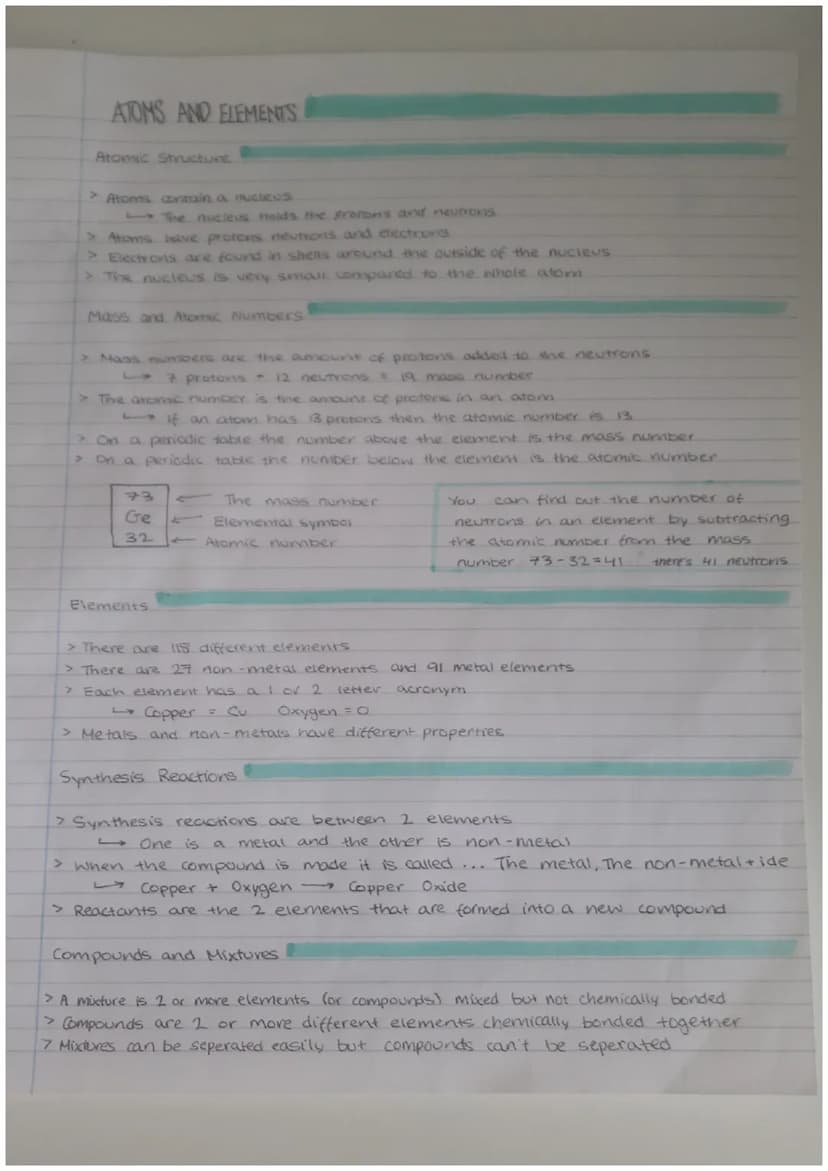 ATOMS AND ELEMENTS
Atomic Structure
> Atoms contain a nucleus
↳ The nucleus holds the protons and neutrons
> Atoms have protons neutrons and electrons
> Electrons are found in shells around the outside of the nucleus
> The nucleus is very small compared to the whole atom
Mass and Atomic Numbers
> Mass numbers are the amount of protons added to the neutrons
↳ 7 protons + 12 neutrons = 19 mass number
> The atomic number is the amount of protons in an atom
↳ If an atom has 13 protons then the atomic number is 13
> On a periodic table the number above the element is the mass number
> On a periodic table the number below the element is the atomic number
73 ← The mass number
Ge ← Elemental symbol
32 ← Atomic number
You can find out the number of
neutrons in an element by subtracting
the atomic number from the mass
number 73-32=41 there's 41 neutrons
Elements
> There are 118 different elements
> There are 27 non-metal elements and 91 metal elements
> Each element has a 1 or 2 letter acronym
↳ Copper = Cu Oxygen = O
> Metals and non-metals have different properties
Synthesis Reactions
> Synthesis reactions are between 2 elements
↳ One is a metal and the other is non-metal
> When the compound is made it is called ... The metal, The non-metal + ide
↳ Copper + Oxygen → Copper Oxide
> Reactants are the 2 elements that are formed into a new compound
Compounds and Mixtures
> A mixture is 2 or more elements (or compounds) mixed but not chemically bonded
> Compounds are 2 or more different elements chemically bonded together
> Mixtures can be seperated easily but compounds can't be seperated